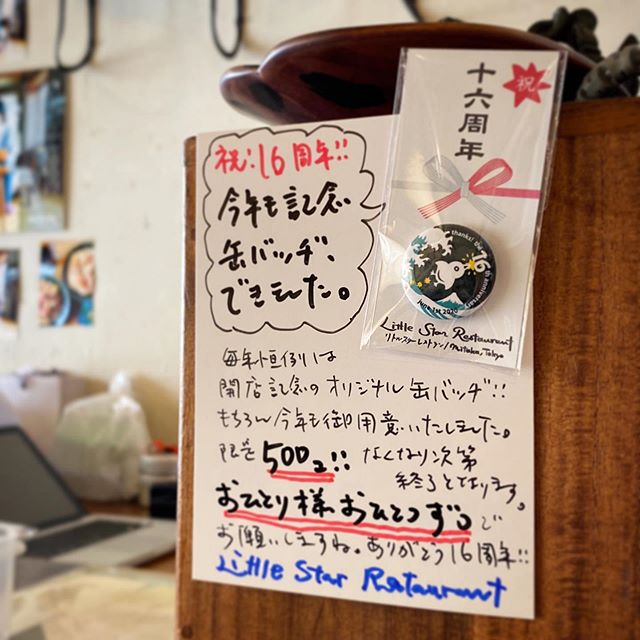 祝:16周年!!
今年も記念
缶バッヂ、
できました。
毎年恒例は
開店記念のオリジナル缶バッヂ!!
もちろん今年も御用意いたしました。
限定500コ!! なくなり次第
終了となります。
おひとり様おひとつずつで
お願いしますね。ありがとう16周年!!
Little Star Restaurant
祝
十六周年
thanks! the 16th anniversary
Little Star Restaurant
リトルスターレストラン/Mitaka, Tokyo